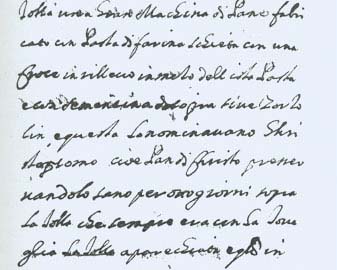 Tolla una gran Machina di Pane fabri
cato con Pasta di farina schietta con una
Croce in rilievo in meto dell ista Pasta
e
lin, e questa la nominavano Chri
stopsomo cioe Pan di Christo preser
uandolo sano per otto giorni sopra
la Tolla che sempre era con la Toua
glia la Tolla aparecchiata e gto in